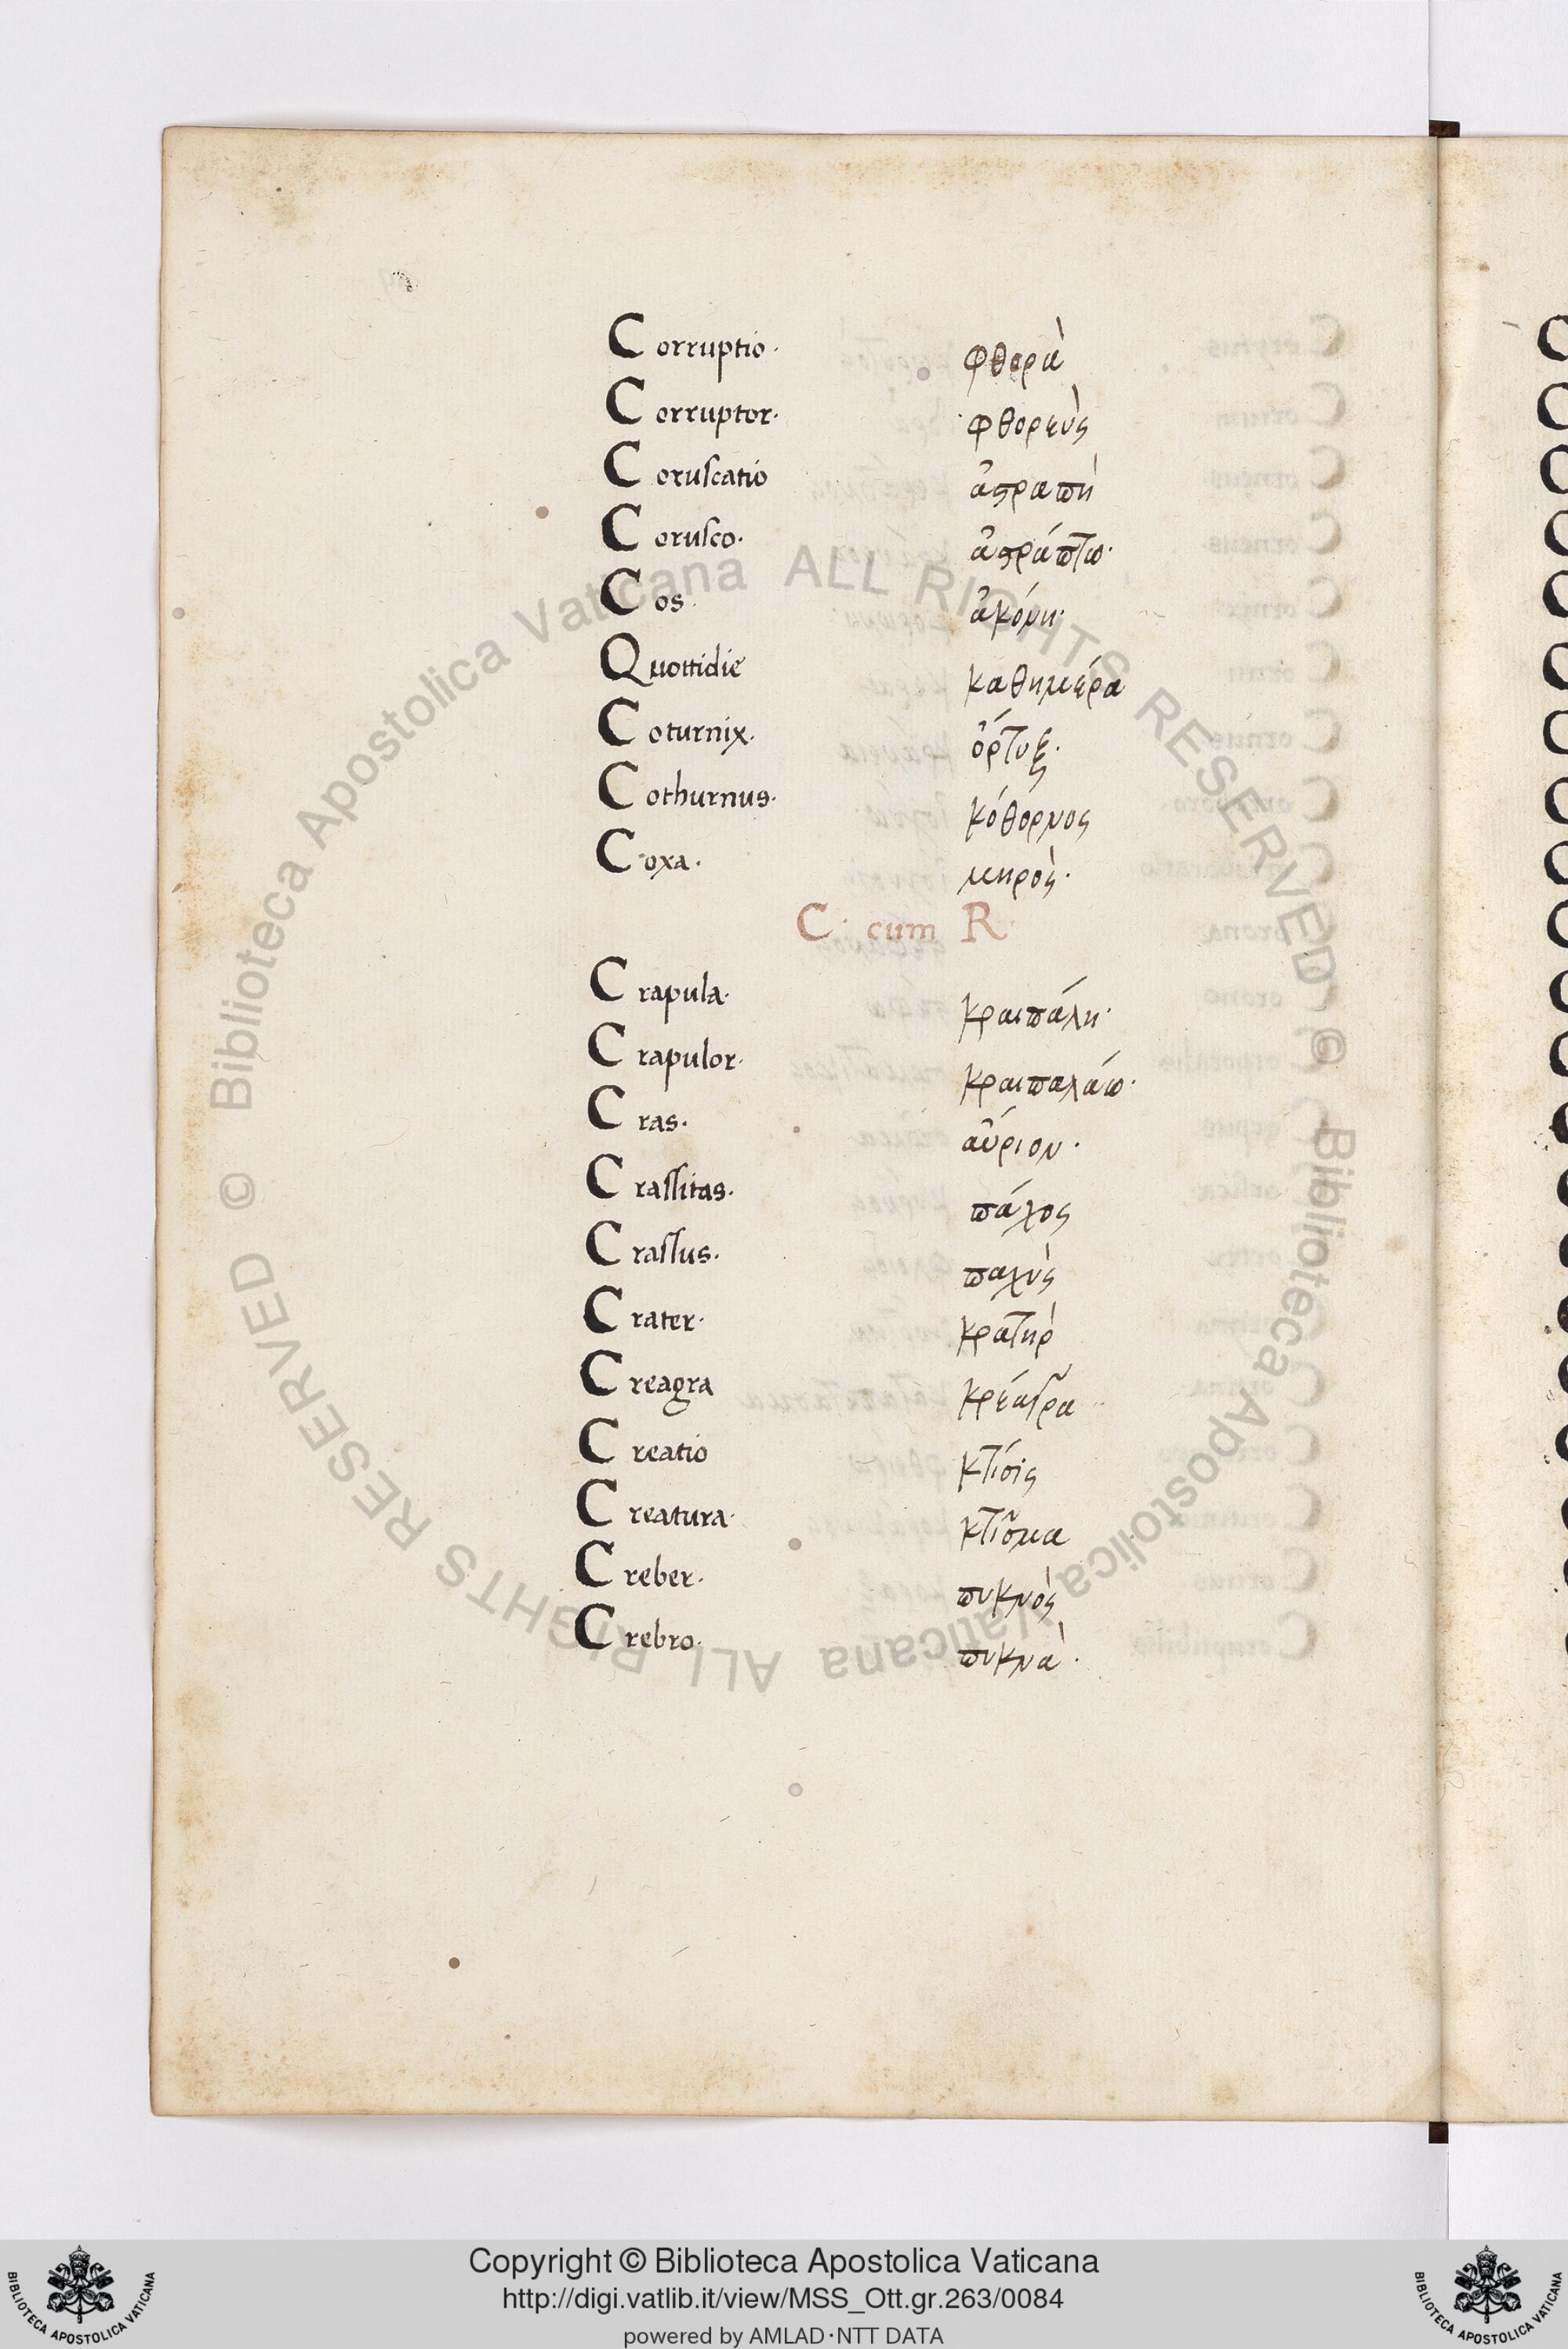 Corruptio· φθορὰ
Corruptor· φθορεὺς
Coruscatio ἀστραπὴ
Corusco· ἀστράπτω·
Cos· ἀκόνη·
Quottidie καθημέρα
Coturnix· ὄρτυξ·
Cothurnus· κόθορνος
Coxa· μηρὸς·
C· cum R·
Crapula· κραιπάλη·
Crapulor· κραιπαλάω·
Cras· αὔριον·
Crassitas· πάχος
Crassus· παχὺς
Crater· κρατὴρ
Creagra κρέαγρα
Creatio κτίσις
Creatura· κτῖσμα
Creber· πυκνὸς
Crebro· πυκνὰ·
© Biblioteca Apostolica Vaticana ALL RIGHTS RESERVED
© Biblioteca Apostolica Vaticana ALL RIGHTS RESERVED
Copyright © Biblioteca Apostolica Vaticana
http://digi.vatlib.it/view/MSS_Ott.gr.263/0084
powered by AMLAD·NTT DATA
BIBLIOTECA APOSTOLICA VATICANA
BIBLIOTECA APOSTOLICA VATICANA